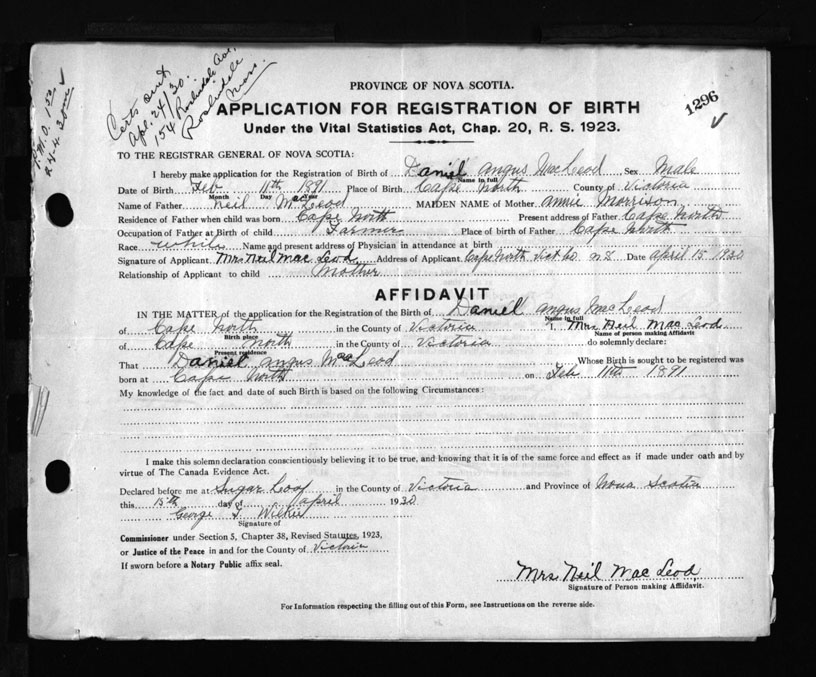 P.M.O. 1.50
Certs sent
Apl. 24/30.
154 Roslindale Ave.,
Roslindale
Mass.
1296
PROVINCE OF NOVA SCOTIA.
APPLICATION FOR REGISTRATION OF BIRTH
Under the Vital Statistics Act, Chap. 20, R. S. 1923.
TO THE REGISTRAR GENERAL OF NOVA SCOTIA:
I hereby make application for the Registration of Birth of Daniel Angus MacLeod Sex Male
Name in full
Date of Birth Feb 11th 1891 Place of Birth Cape North County of Victoria
Month Day Year
Name of Father Neil MacLeod MAIDEN NAME of Mother Annie Morrison
Residence of Father when child was born Cape North Present address of Father Cape North
Occupation of Father at Birth of child Farmer Place of birth of Father Cape North
Race white Name and present address of Physician in attendance at birth
Signature of Applicant Mrs Neil Mac Leod Address of Applicant Cape North Vict Co. N.S. Date April 15 1930
Relationship of Applicant to child Mother
AFFIDAVIT
IN THE MATTER of the application for the Registration of the Birth of Daniel Angus McLeod
Name in full
of Cape North in the County of Victoria I, Mrs Neil Mac Leod
Birth place Name of person making Affidavit
of Cape North in the County of Victoria do solemnly declare:
Present residence
That Daniel Angus MacLeod Whose Birth is sought to be registered was
born at Cape North on Feb 11th 1891
My knowledge of the fact and date of such Birth is based on the following Circumstances:
I make this solemn declaration conscientiously believing it to be true, and knowing that it is of the same force and effect as if made under oath and by
virtue of The Canada Evidence Act.
Declared before me at Sugar Loaf in the County of Victoria and Province of Nova Scotia
this 15th day of April 1930
George Wilkie
Signature of
Commissioner under Section 5, Chapter 38, Revised Statutes, 1923,
or Justice of the Peace in and for the County of Victoria
If sworn before a Notary Public affix seal.
Mrs Neil Mac Leod
Signature of Person making Affidavit.
For Information respecting the filling out of this Form, see Instructions on the reverse side.